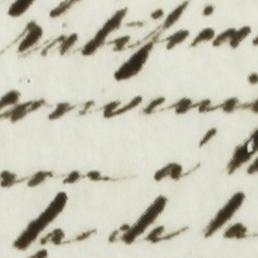 ratifica
conveni
ron á
la de la